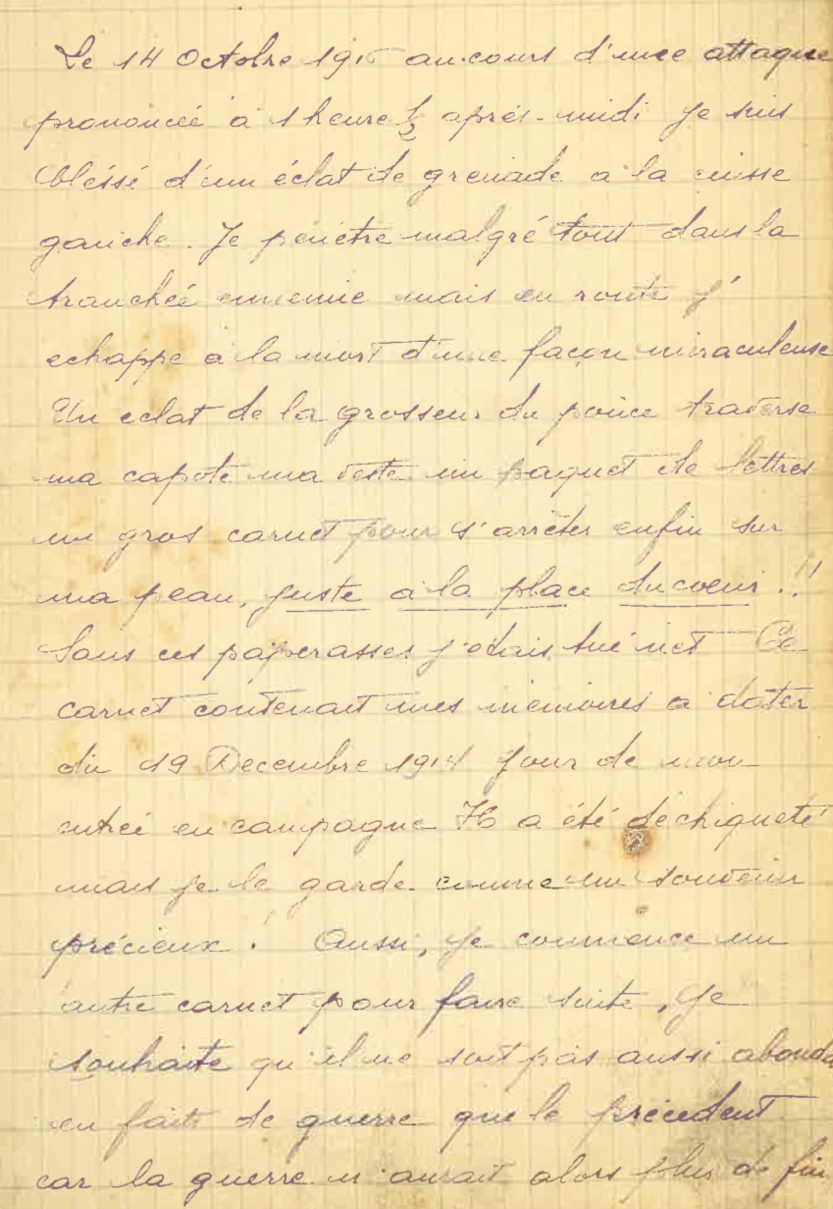 Le 14 Octobre 1915 au cours d'une attaque
prononcée à 1 heure 1/2 après-midi je suis
bléssé d'un éclat de grenade a la cuisse
gauche. Je penètre malgré tout dans la
tranchée ennemie mais en route j'
echappe à la mort d'une façon miraculeuse
Un eclat de la grosseur du pouce traverse
ma capote ma veste un paquet de lettres
un gros carnet pour s'arrêter enfin sur
ma peau, juste à la place du coeur..!!
Sans ces paperasses j'etais tué net Ce
carnet contenait mes memoires a dater
du 19 Decembre 1914 jour de mon
entrée en campagne Il a été dechiqueté
mais je le garde comme un souvenir
précieux. Aussi, je commence un
autre carnet pour faire suite, je
souhaite qu'il ne soit pas aussi abonda
en faits de guerre que le précedent
car la guerre n'aurait alors plus de fin